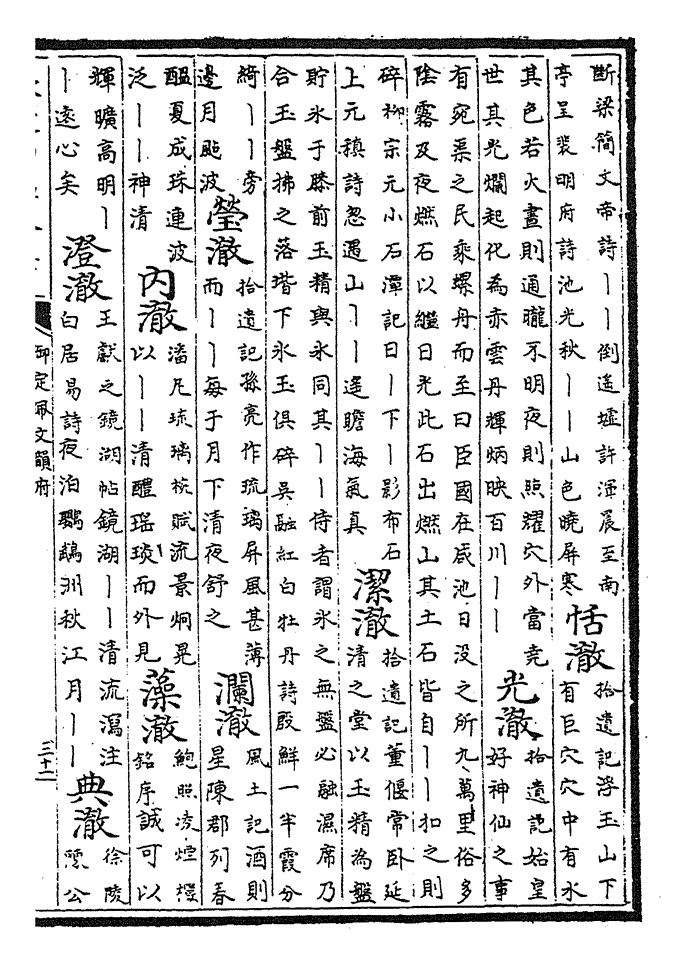 斷梁簡文帝詩丨丨倒遙墟許渾晨至南
亭呈裴明府詩池光秋丨丨山色曉屏寒
恬澈
拾遺記浮玉山下
有巨穴穴中有水
其色若火晝則通曨不明夜則照耀穴外當堯
世其光爛起化為赤雲丹輝炳映百川丨丨
光澈
拾遺記始皇
好神仙之事
有宛渠之民乘螺舟而至曰臣國在咸池日没之所九萬里俗多
陰霧及夜燃石以繼日光此石出燃山其土石皆自丨丨扣之則
碎柳宗元小石潭記日丨下丨影布石
上元稹詩忽遇山丨丨遙瞻海氣真
潔澈
拾遺記董偃常卧延
清之堂以玉精為盤
貯氷于膝前玉精與氷同其丨丨侍者謂氷之無盤必融濕席乃
合玉盤拂之落堦下氷玉俱碎吳融紅白牡丹詩殷鮮一半霞分
綺丨丨旁
邊月颭波
瑩澈
拾遺記孫亮作琉璃屏風甚薄
而丨丨每于月下清夜舒之
瀾澈
風土記酒則
星陳郡列春
醖夏成珠連波
泛丨丨神清
内澈
潘尼琉璃椀賦流景炯晃
以丨丨清醴瑶琰而外見
藻澈
鮑照凌煙樓
銘序誠可以
輝曠高明丨
丨遠心矣
澄澈
王獻之鏡湖帖鏡湖丨丨清流瀉注
白居易詩夜泊鸚鵡洲秋江月丨丨
典澈
徐陵
覽公
御定佩文韻府
三十二